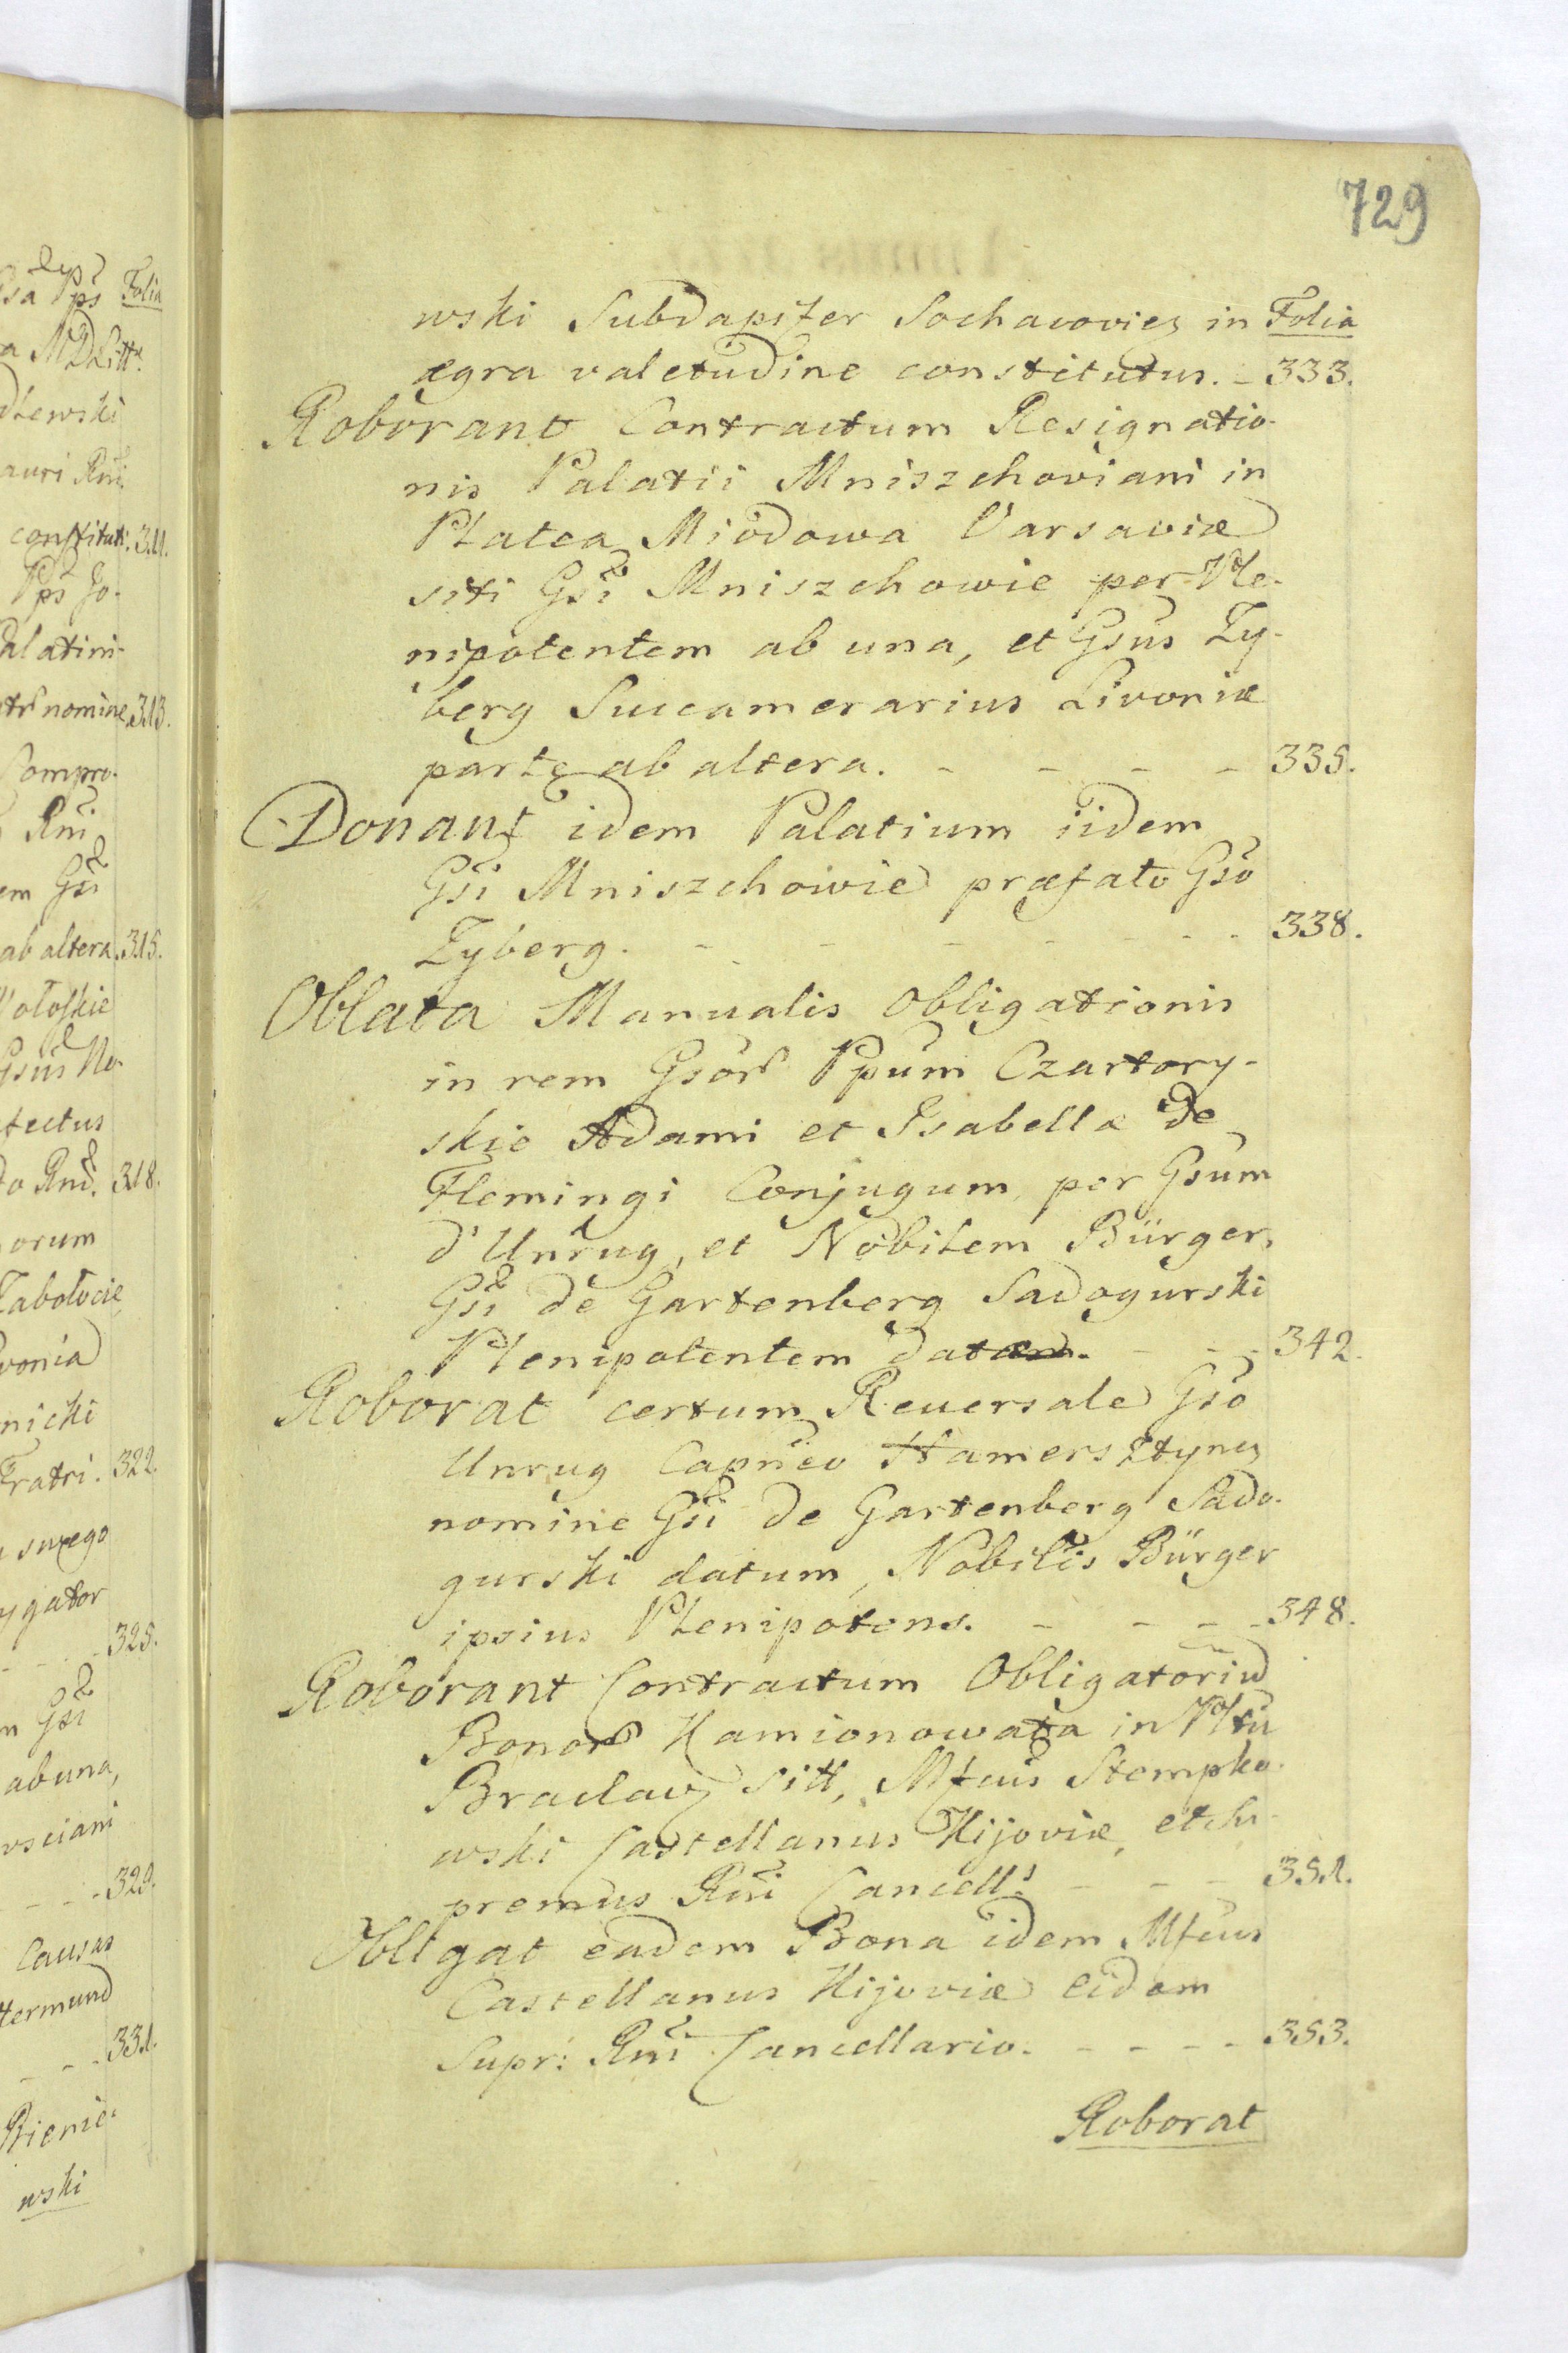 729
Folia
wski Subdapifer Sochacoviey in
ægra valetudine constitutus. - 333.
Roborant Contractum Resignatio-
nis Palatii Mniszchoviani in
Platea Miodowa Varsaviæ
siti Gsi Mniszchowie per Ple-
nipotentem ab una, et Gsus Zy-
berg Succamerarius Livoniæ
parte ab altera. - - - - 335.
Donant idem Palatium iidem
Gsi Mniszchowie præfato Gso
Zyberg. - - - - - - 338.
Oblata Manualis Obligationis
in rem Gsor Ppum Czartory-
skie Adami et Isabellæ de
Flemingi Conjugum, per Gsum
d'Unrug, et Nobilem Bürger,
Gsi de Gartenberg Sadogurski
Plenipotentem datæ. - - - 342.
Roborat certum Reversale Gso
Unrug Capneo Hamersztynen
nomine Gsi de Gartenberg Sado-
gurski datum, Nobilis Bürger
ipsius Plenipotens. - - - - 348.
Roborant Contractum Obligatoriu
Bonor Kamionowata in Pltu
Braclav sitt, Mfcus Stempko-
wski Castellanus Kijoviæ, et Su-
premus Rni Cancell: - - - 351.
Obligat eadem Bona idem Mfcus
Castellanus Kijoviæ eidem
Supr: Rni Cancellario. - - - - 353.
Roborat
Folia
constitut. 311.
Pps Jo-
nomine 313.
Compro-
Rni
Gsi
ab altera. 315.
Gsus
318.
orum
nicki
Fratri. 322.
swego
325.
Gsi
ab una,
329.
Causas
331.
Bienie-
wski